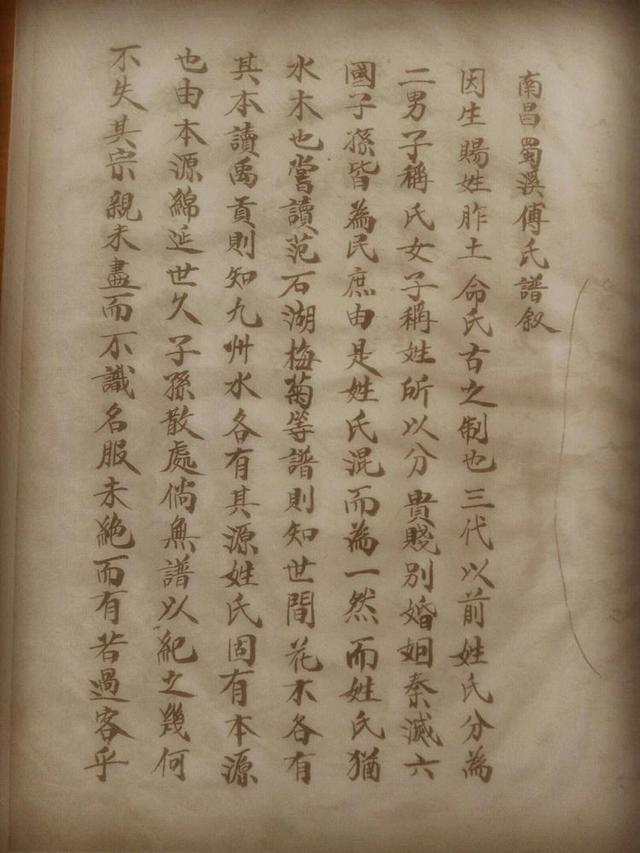 南昌蜀溪傅氏譜叙
因生賜姓胙土命氏古之制也三代以前姓氏分為
二男子稱氏女子稱姓所以分貴賤別婚姻秦滅六
國子孫皆為民庶由是姓氏混而為一然而姓氏猶
水木也嘗讀范石湖梅菊等譜則知世間花木各有
其本讀禹貢則知九州水各有其源姓氏固有本源
也由本源綿延世久子孫散處倘無譜以紀之幾何
不失其宗親未盡而不識名服未絕而有若過客乎